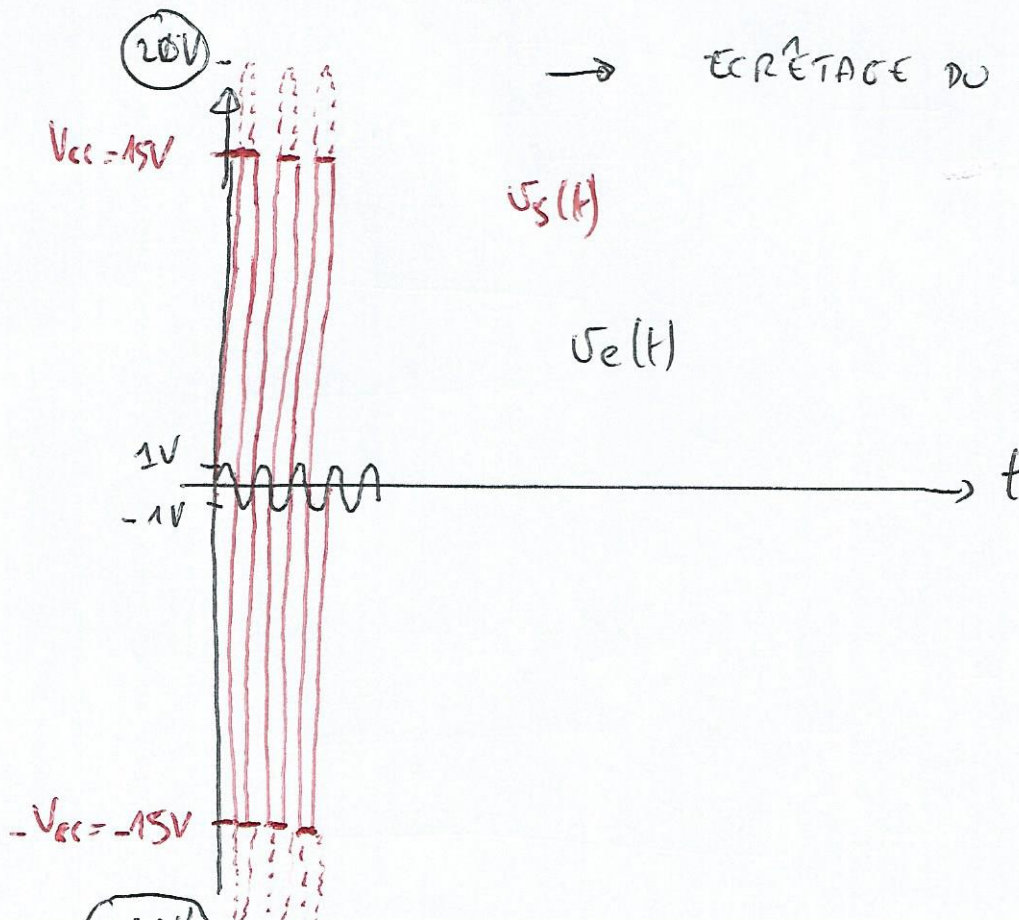 20V
→ ECRÊTAGE DU
Vcc = 15V
vs(t)
ve(t)
1V
-1V
t
-Vcc = -15V